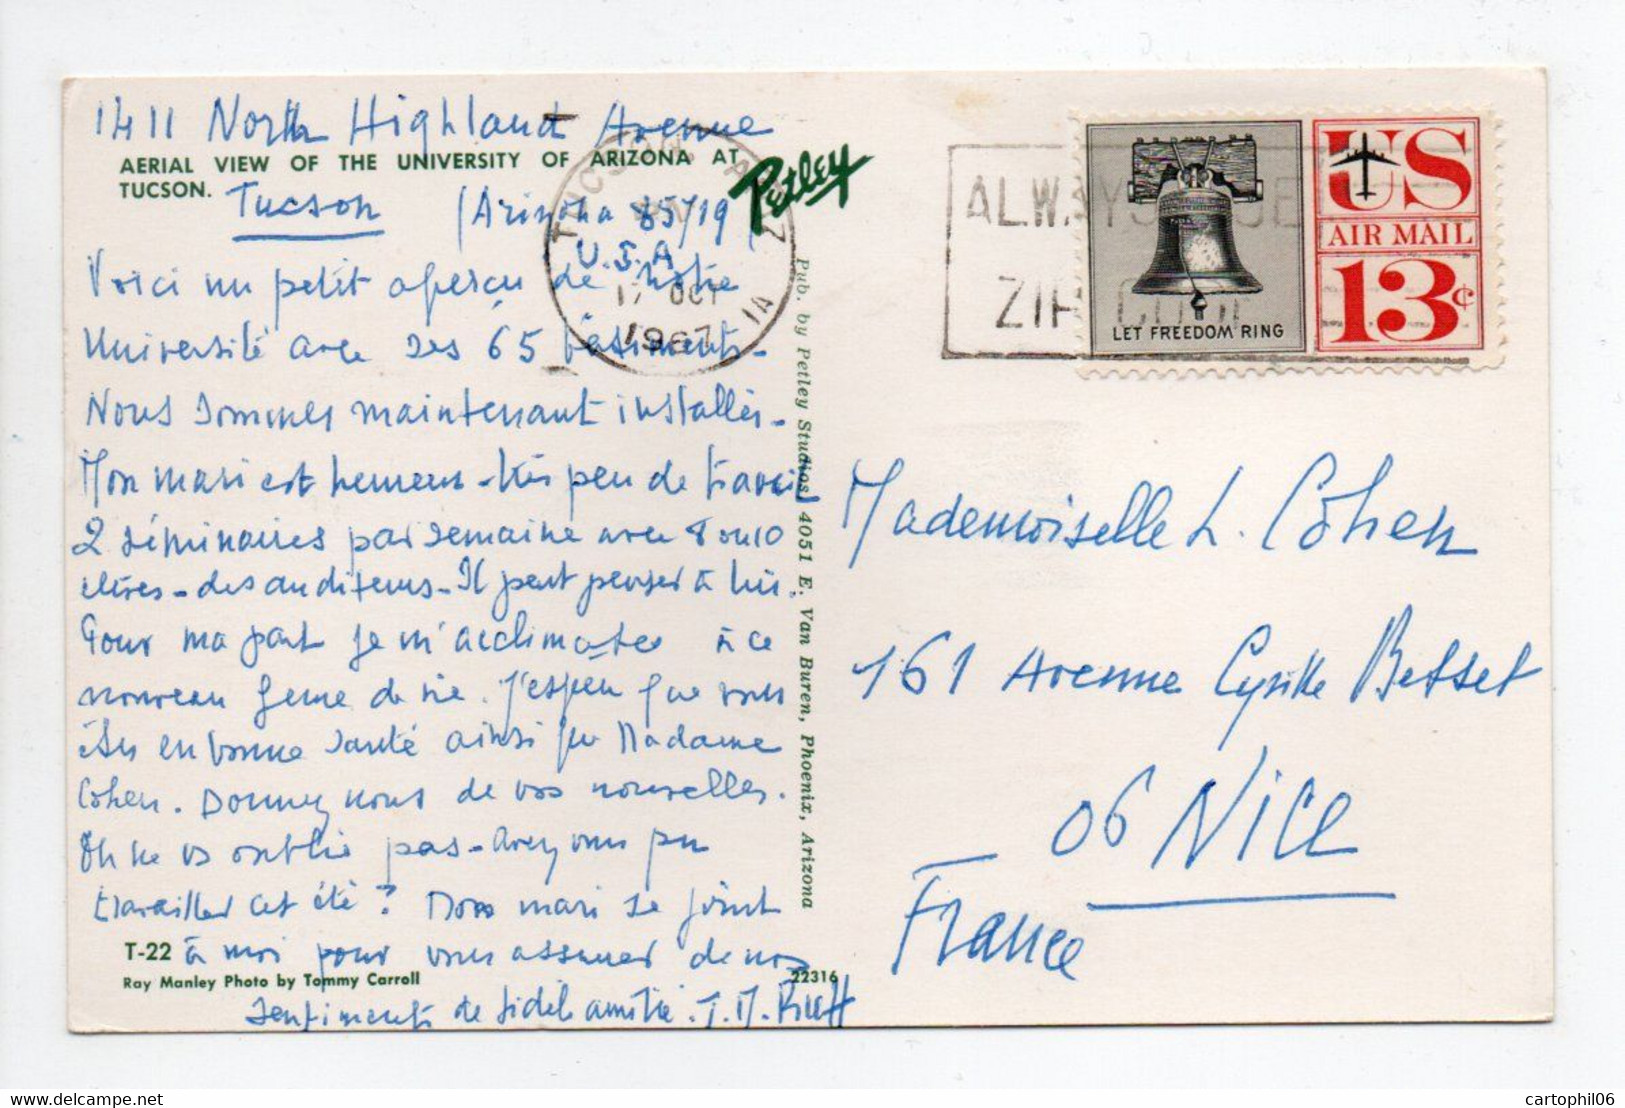 1411 North Highland Avenue
AERIAL VIEW OF THE UNIVERSITY OF ARIZONA AT
TUCSON.
Tucson (Arizona 85719)
U.S.A
Petley
TUCSON, ARIZONA
17 OCT
1967
Voici un petit aperçu de notre
Université avec ses 65 bâtiments.
Nous sommes maintenant installés.
Mon mari est heureux - très peu de travail
2 séminaires par semaine avec 8 ou 10
élèves - des auditeurs - Il peut penser à lui.
Pour ma part je m'acclimate à ce
nouveau genre de vie. J'espère que vous
êtes en bonne santé ainsi que Madame
Cohen. Donnez nous de vos nouvelles.
On ne vs oublie pas - avez vous pu
travailler cet été? Mon mari se joint
à moi pour vous assurer de nos
sentiments de fidèle amitié.
T-22
Ray Manley Photo by Tommy Carroll
22316
Pub. by Petley Studios, 4051 E. Van Buren, Phoenix, Arizona
ALWAYS USE
ZIP CODE
LET FREEDOM RING
US
AIR MAIL
13¢
Mademoiselle L. Cohen
161 Avenue Cyrille Besset
06 NICE
France
cartophil06